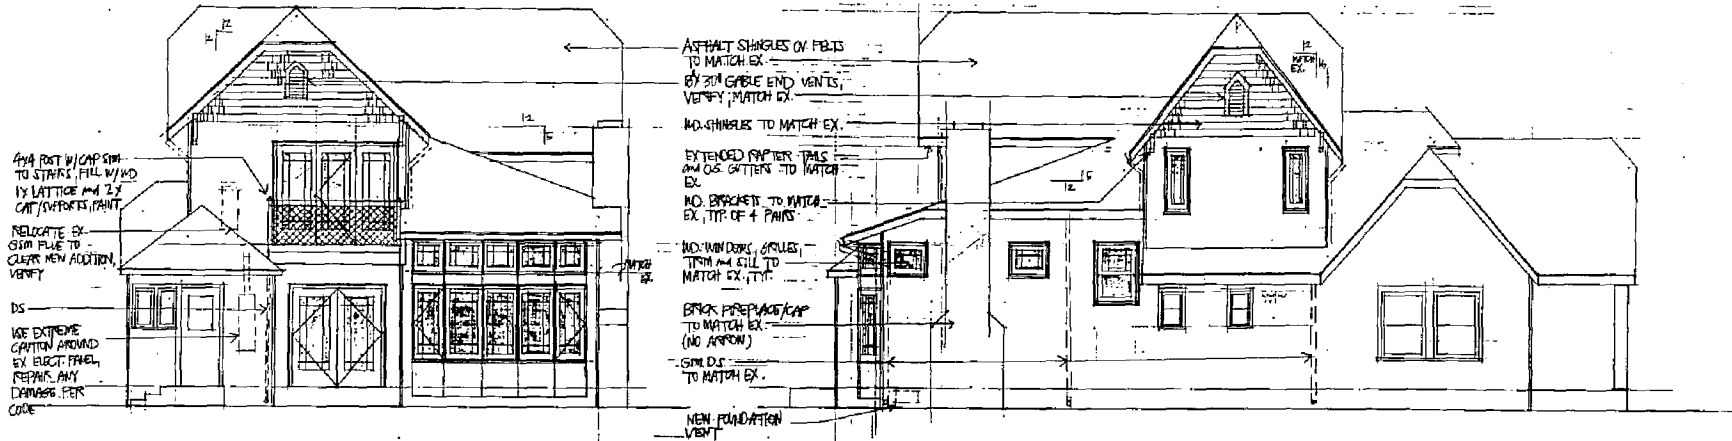 4X4 POST W/CAP SIM
TO STAIRS, FILL W/WD
1X LATTICE AND 2X
CAP/SUPPORTS, PAINT
RELOCATE EX
GSM FLUE TO
CLEAR NEW ADDITION,
VERIFY
DS
USE EXTREME
CAUTION AROUND
EX ELECT. PANEL,
REPAIR ANY
DAMAGE PER
CODE
12
12
12
5
MATCH
EX.
ASPHALT SHINGLES OV FELTS
TO MATCH EX
GABLE END VENTS,
VERIFY, MATCH EX.
WD. SHINGLES TO MATCH EX.
EXTENDED RAFTER TAILS
AND O.G. GUTTERS TO MATCH
EX
WD. BRACKETS TO MATCH
EX, TYP. OF 4 PAIRS
WD. WINDOWS, GRILLES,
TRIM AND SILL TO
MATCH EX., TYP.
BRICK FIREPLACE/CAP
TO MATCH EX.
(NO ARROW)
GSM DS
TO MATCH EX.
NEW FOUNDATION
VENT
12
MATCH
EX.
5
12